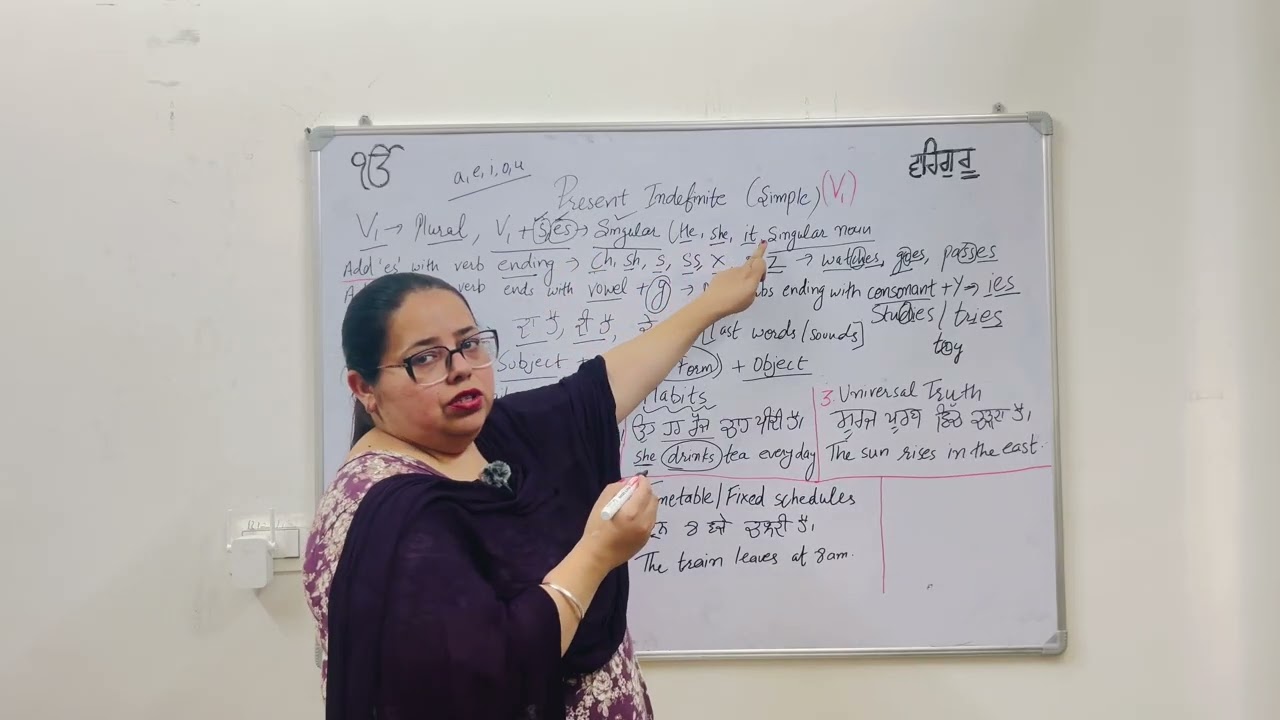 ੴ
a,e,i,o,u
ਵਹਿਗੁਰੂ
Present Indefinite (Simple) (V1)
V1 → Plural, V1 + s/es → Singular (He, she, it, Singular noun
Add 'es' with verb ending → ch, sh, s, ss, x, z → watches, goes, passes
verb ends with vowel + y → ending with consonant + Y ⇒ ies
studies / tries
toy
ਦਾ ਹੈ, ਦੀ ਹੈ, [last words/sounds]
Subject + form) + Object
Habits
ਉਹ ਹਰ ਰੋਜ਼ ਚਾਹ ਪੀਂਦੀ ਹੈ।
she drinks tea everyday
3. Universal Truth
ਸੂਰਜ ਪੂਰਬ ਵਿੱਚ ਚੜ੍ਹਦਾ ਹੈ।
The sun rises in the east.
Timetable/Fixed schedules
8 ਵਜੇ ਚਲਦੀ ਹੈ।
The train leaves at 8am.